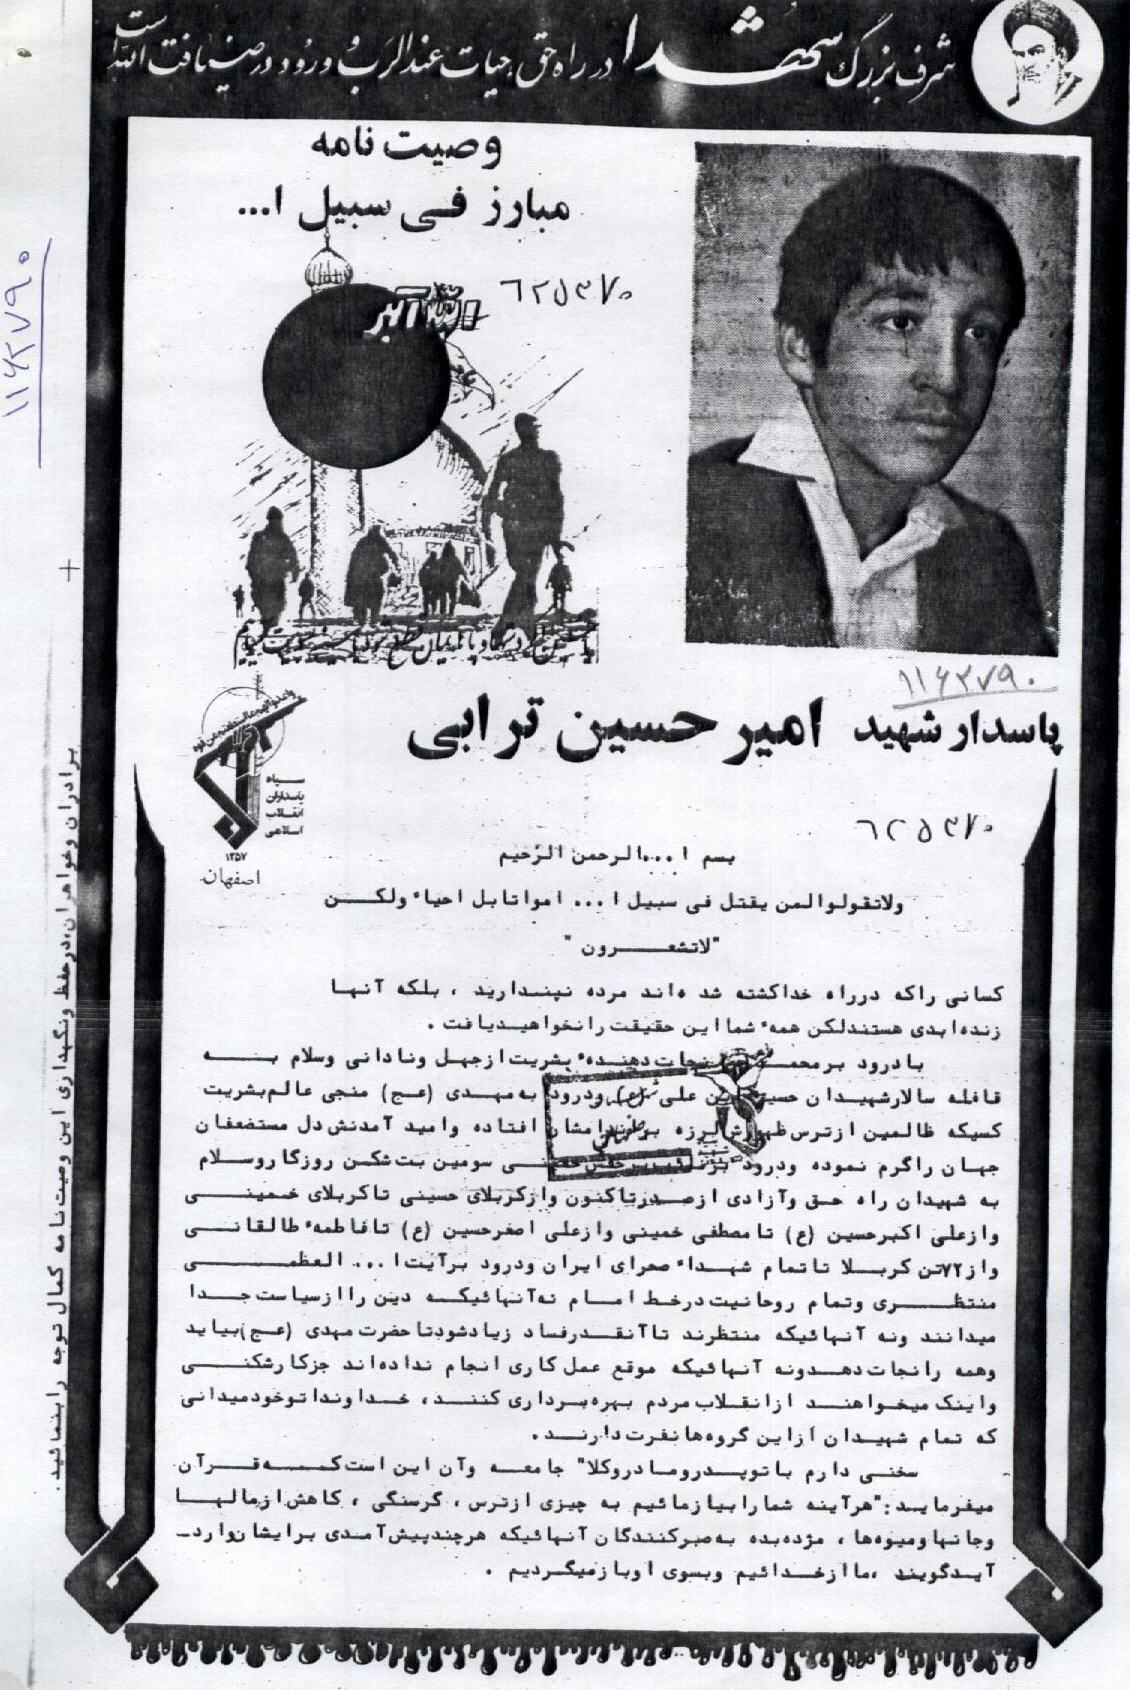 شرف بزرگ شهدا در راه حق، حیات عندالرب و ورود در ضیافت الله است
وصیت نامه
مبارز فی سبیل ا...
الله اکبر
۶۲۵۳۷۰
۱۱۶۲۷۹۰
۱۱۶۲۷۹۰
پاسدار شهید امیر حسین ترابی
سپاه
پاسداران
انقلاب
اسلامی
۱۳۵۷
اصفهان
۶۲۵۳۷۰
بسم ا...الرحمن الرحیم
ولاتقولوالمن یقتل فی سبیل ا... امواتابل احیاء ولکن
"لاتشعرون"
کسانی راکه درراه خداکشته شده اند مرده نپندارید ، بلکه آنها
زنده ابدی هستندلکن همه شمااین حقیقت رانخواهیدیافت .
بادرود برمحمد نجات دهنده بشریت ازجهل ونادانی وسلام به
قافله سالارشهیدان حسین بن علی (ع) ودرود به مهدی (عج) منجی عالم بشریت
کسیکه ظالمین ازترس ظهورش لرزه براندامشان افتاده وامید آمدنش دل مستضعفان
جهان راگرم نموده ودرود برنائب برحقش خمینی سومین بت شکن روزگاروسلام
به شهیدان راه حق وآزادی ازصدرتاکنون وازکربلای حسینی تاکربلای خمینی
وازعلی اکبرحسین (ع) تامصطفی خمینی وازعلی اصغرحسین (ع) تافاطمه طالقانی
واز۷۲تن کربلا تاتمام شهداء صحرای ایران ودرود برآیت ا... العظمی
منتظری وتمام روحانیت درخط امام نه آنهائیکه دین راازسیاست جدا
میدانند ونه آنهائیکه منتظرند تاآنقدرفساد زیادشودتاحضرت مهدی (عج)بیاید
وهمه رانجات دهدونه آنهائیکه موقع عمل کاری انجام نداده اند جزکارشکنی
واینک میخواهند ازانقلاب مردم بهره برداری کنند، خداوندا توخودمیدانی
که تمام شهیدان ازاین گروه هانفرت دارند.
سخنی دارم باتوپدرومادروکلا" جامعه وآن این است که قرآن
میفرماید:"هرآینه شمارابیازمائیم به چیزی ازترس ، گرسنگی ، کاهش ازمالها
وجانهاومیوه‌ها ، مژده بده به صبرکنندگان آنهائیکه هرچندپیش آمدی برایشان وارد
آیدگویند ،ماازخدائیم وبسوی اوبازمیگردیم .
برادران وخواهران،درحفظ ونگهداری این وصیت نامه کمال توجه رابنمائید.